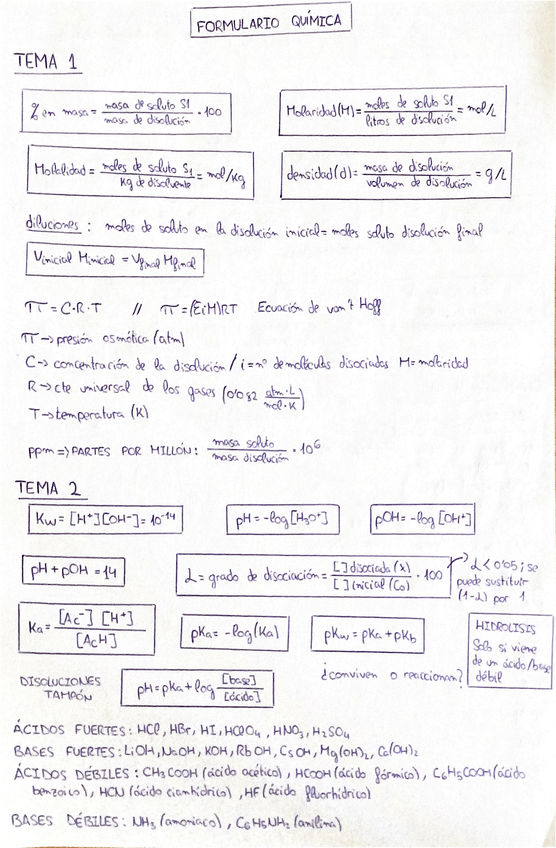 FORMULARIO QUÍMICA
TEMA 1
% en masa = masa de soluto S1 / masa de disolución · 100
Molaridad (M) = moles de soluto S1 / litros de disolución = mol/L
Molalidad = moles de soluto S1 / Kg de disolvente = mol/Kg
densidad (d) = masa de disolución / volumen de disolución = g/L
diluciones : moles de soluto en la disolución inicial = moles soluto disolución final
Vinicial Minicial = Vfinal Mfinal
π = C·R·T // π = (ΣiM)RT Ecuación de van't Hoff
π → presión osmótica (atm)
C → concentración de la disolución / i = nº de moléculas disociadas M = molaridad
R → cte universal de los gases (0'082 atm·L / mol·K)
T → temperatura (K)
ppm => PARTES POR MILLÓN: masa soluto / masa disolución · 10⁶
TEMA 2
Kw = [H⁺][OH⁻] = 10⁻¹⁴
pH = -log [H₃O⁺]
pOH = -log [OH⁻]
pH + pOH = 14
α = grado de disociación = [ ] disociada (x) / [ ] inicial (C₀) · 100
α < 0'05; se
puede sustituir
(1-α) por 1
Ka = [Ac⁻] [H⁺] / [AcH]
pKa = -log (Ka)
pKw = pKa + pKb
HIDROLISIS
Solo si viene
de un ácido/base
débil
DISOLUCIONES
TAMPÓN
pH = pKa + log [base] / [ácido]
¿conviven o reaccionan?
ÁCIDOS FUERTES: HCl, HBr, HI, HClO₄, HNO₃, H₂SO₄
BASES FUERTES: LiOH, NaOH, KOH, RbOH, CsOH, Mg(OH)₂, Ca(OH)₂
ÁCIDOS DÉBILES: CH₃COOH (ácido acético), HCOOH (ácido fórmico), C₆H₅COOH (ácido
benzoico), HCN (ácido cianhídrico), HF (ácido fluorhídrico)
BASES DÉBILES: NH₃ (amoniaco), C₆H₅NH₂ (anilina)